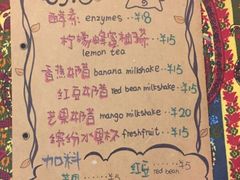 酵素 enzymes ~ ¥18
柠檬蜂蜜柚子茶 ¥15
lemon tea
香蕉奶昔 banana milkshake ¥15
红豆奶昔 red bean milkshake ¥15
芒果奶昔 mango milkshake ¥20
缤纷水果杯 freshfruit ¥15
加料
红豆 ¥5
red bean